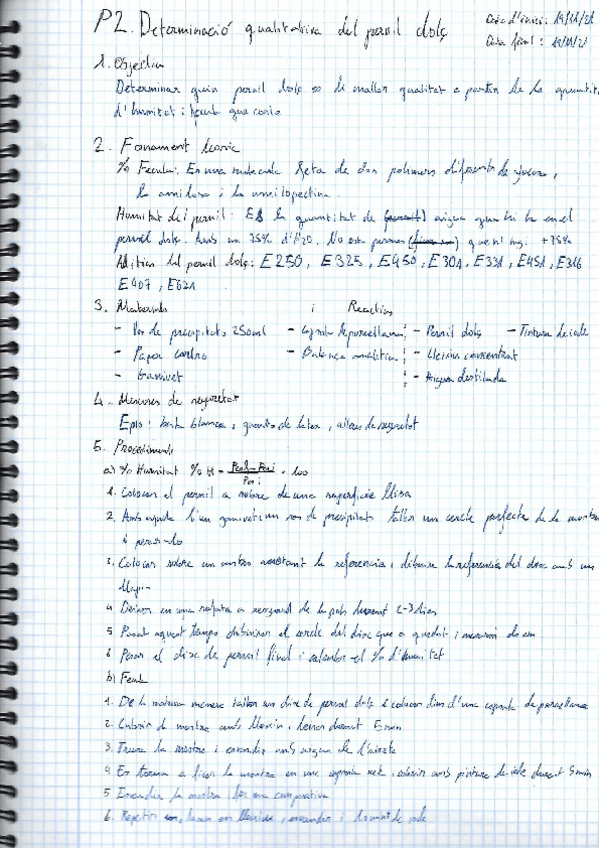 P2. Determinació qualitativa del pernil dolç
Data d'inici: 19/11/21
Data final:
1. Objectiu
Determinar quin pernil dolç es de millor qualitat a partir de la quantitat
d'humitat i fecula que conte
2. Fonament teoric
% Fecula: Es una molecula feta de dos polimers diferents de glucosa,
la amilosa i la amilopectina.
Humitat del pernil: ES la quantitat de aigua que hi ha en el
pernil dolç. Amb un 75% d'H2O. No esta permes que hi hagi +75%
Aditius del pernil dolç: E250, E325, E450, E301, E331, E451, E316
E407, E621
3. Materials i Reactius
- Vas de precipitats 250ml - Capsula de porcellana - Pernil dolç - Tintura de iode
- Paper - Balança analitica - Lleixiu concentrat
- Ganivet - Aigua destilada
4. Mesures de seguretat
Epis: bata blanca, guants de latex, ulleres de seguretat
5. Procediment
a) % Humitat % H = · 100
1. Colocar el pernil a sobre de una superficie llisa
2. Amb ajuda d'un ganivet i un vas de precipitats tallar un cercle perfecte de la mostra
i pesar-lo
3. Colocar sobre un la referencia i dibuixar la referencia del disc amb un
llapis
4 Deixar en una a resguard de la pols durant dies
5 Passat aquest temps dibuixar el cercle del disc que a quedat i
6 Pesar el disc de pernil final i calcular-el % d'humitat
b) Fecula
1. De la mateixa manera tallar un disc de pernil dolç i colocar dins d'una capsula de porcellana
2. Cobrir la mostra amb lleixiu i deixar durant 5 min
3. Treure la mostra i esbandir amb aigua de l'aixeta
4 Es torna a ficar la mostra en una capsula neta i cobrir amb tintura de iode durant 5 min
5 Esbandir la mostra i fer una comparativa
6. Repetir lleixiu, esbandir i iode